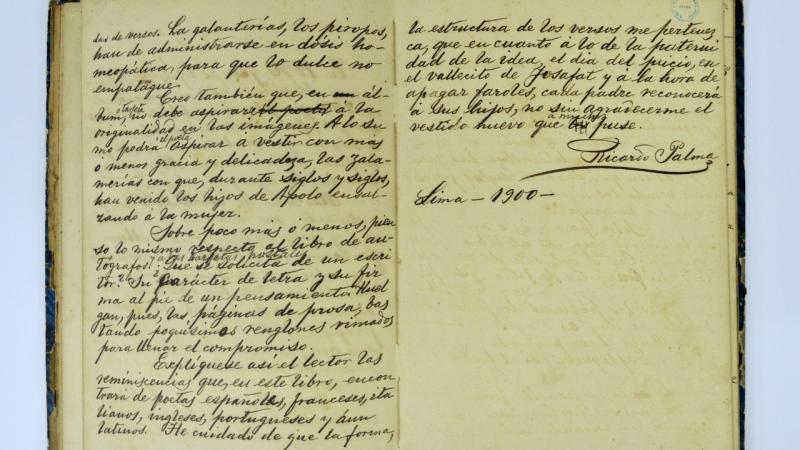 das de versos. La galanterías, los piropos,
han de administrarse en dósis ho-
meopática, para que lo dulce no
empalague.
Creo tambien que, en un ál-
bum, no debe aspirarse el poeta á la
originalidad en las imágenes. A lo su
mo podrá el poeta aspirar á vestir con mas
ó menos gracia y delicadeza, las zala-
merías con que, durante siglos y siglos,
han venido los hijos de Apolo ensal-
zando á la mujer.
Sobre poco mas ó menos, pien
so lo mismo respecto al libro de au-
tógrafos y a las tarjetas postales
¿Qué se solicita de un escri
tor? Su carácter de letra y su fir
ma al pie de un pensamiento. Huel
gan, pues, las páginas de prosa, bas
tando poquísimos renglones rimados
para llenar el compromiso.
Explíquese así el lector las
reminiscencias que, en este libro, encon
trará de poetas españoles, franceses, ita
lianos, ingleses, portugueses y áun
latinos. He cuidado de que la forma,
la estructura de los versos me pertenez
ca, que en cuanto á lo de la paterni
dad de la idea, el dia del juicio, en
el vallecito de Josafat y á la hora de
apagar faroles, cada padre reconocerá
á sus hijos, no sin agradecerme el
vestido nuevo que á muchos puse.
Ricardo Palma
Lima - 1900 -